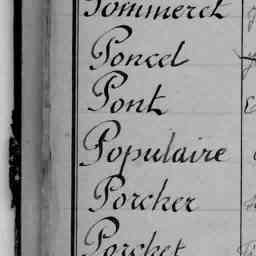 Pommerch
Poncel
Pont
Populaire
Porcher
Porchet